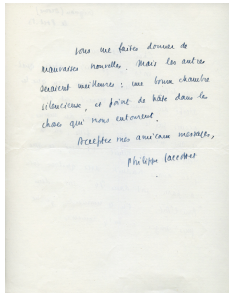 Vous me faites donner de
mauvaises nouvelles. Mais les autres
seraient meilleures : une bonne chambre
silencieuse, et point de hâte dans les
choses qui nous entourent.
Acceptez mes amicaux messages,
Philippe Jaccottet